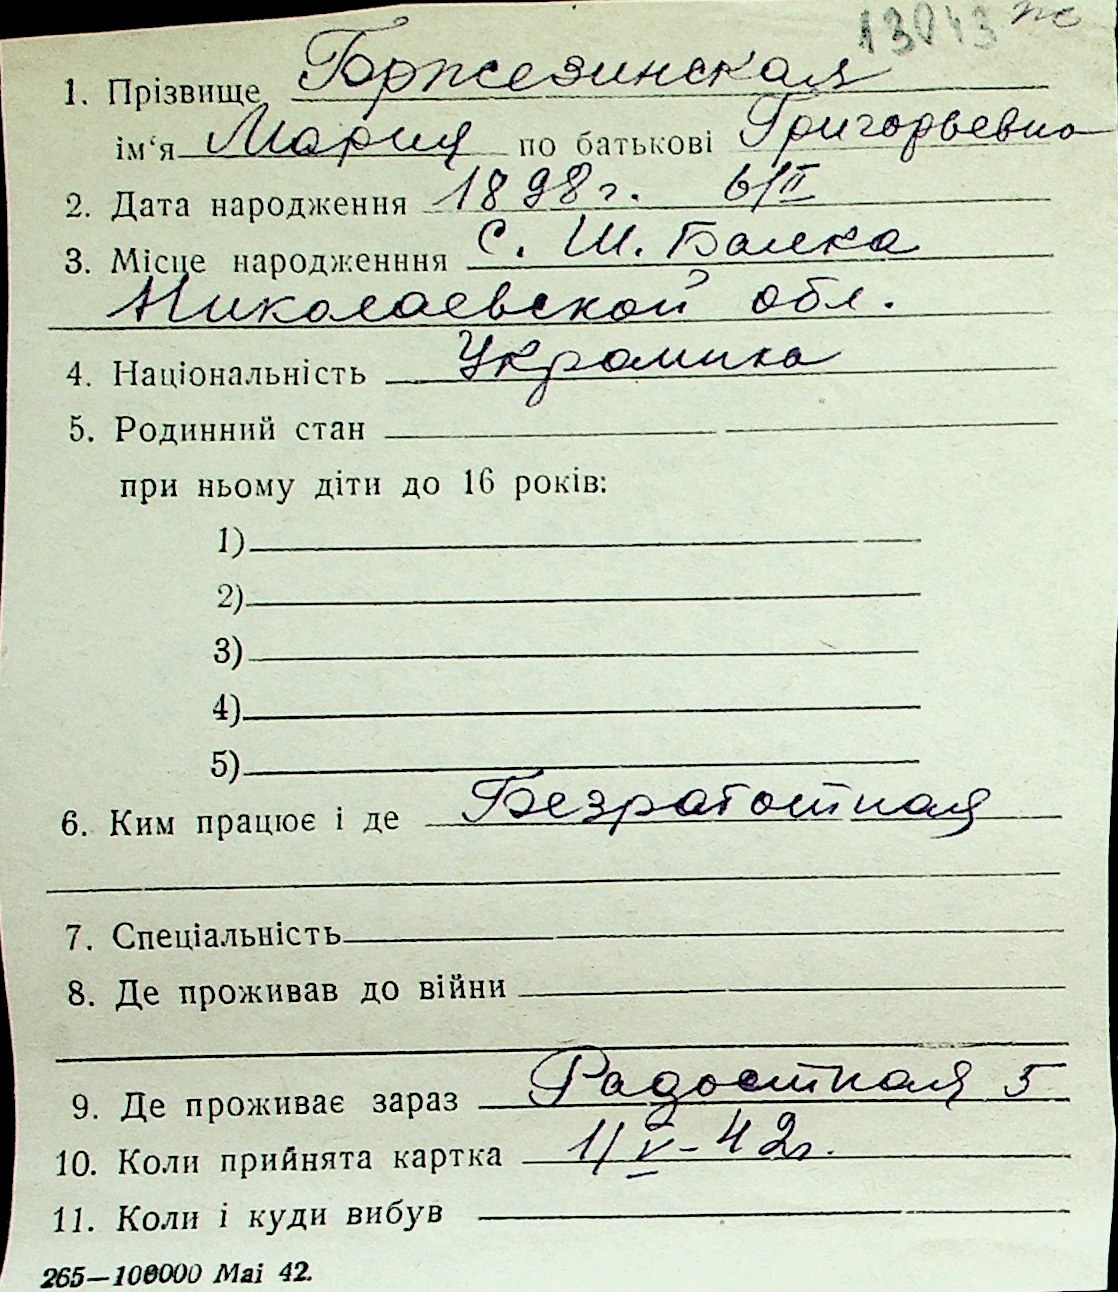 13043 же
1. Прізвище Боржезинская
ім‘я Мария по батькові Григорьевна
2. Дата народження 1898 г. 6/II
3. Місце народженння с. Ш. Балка
Николаевской обл.
4. Національність Украинка
5. Родинний стан
при ньому діти до 16 років:
1)
2)
3)
4)
5)
6. Ким працює і де Безработная
7. Спеціальність
8. Де проживав до війни
9. Де проживає зараз Радостная 5
10. Коли прийнята картка 1/V-42г.
11. Коли і куди вибув
265—100000 Mai 42.